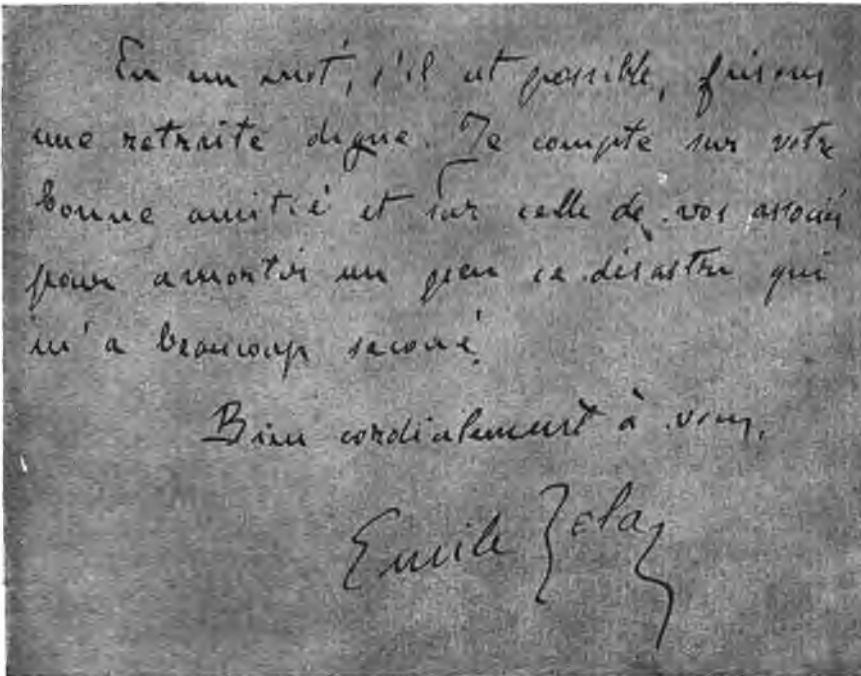 En un mot, s'il est possible, faisons
une retraite digne. Je compte sur votre
bonne amitié et sur celle de vos associés
pour amortir un peu ce désastre qui
m'a beaucoup secoué.
Bien cordialement à vous,
Emile Zola